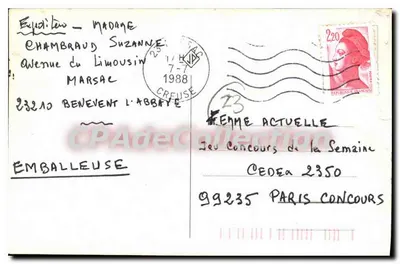 Expéditeur - MADAME
CHAMBRAUD SUZANNE
Avenue du Limousin
MARSAC
23210 BENEVENT L'ABBAYE
EMBALLEUSE
7-7
1988
CREUSE
2,20
23
FEMME ACTUELLE
Jeu CONCOURS de la Semaine
CEDEX 2350
99235 PARIS CONCOURS
CPAdeCollection